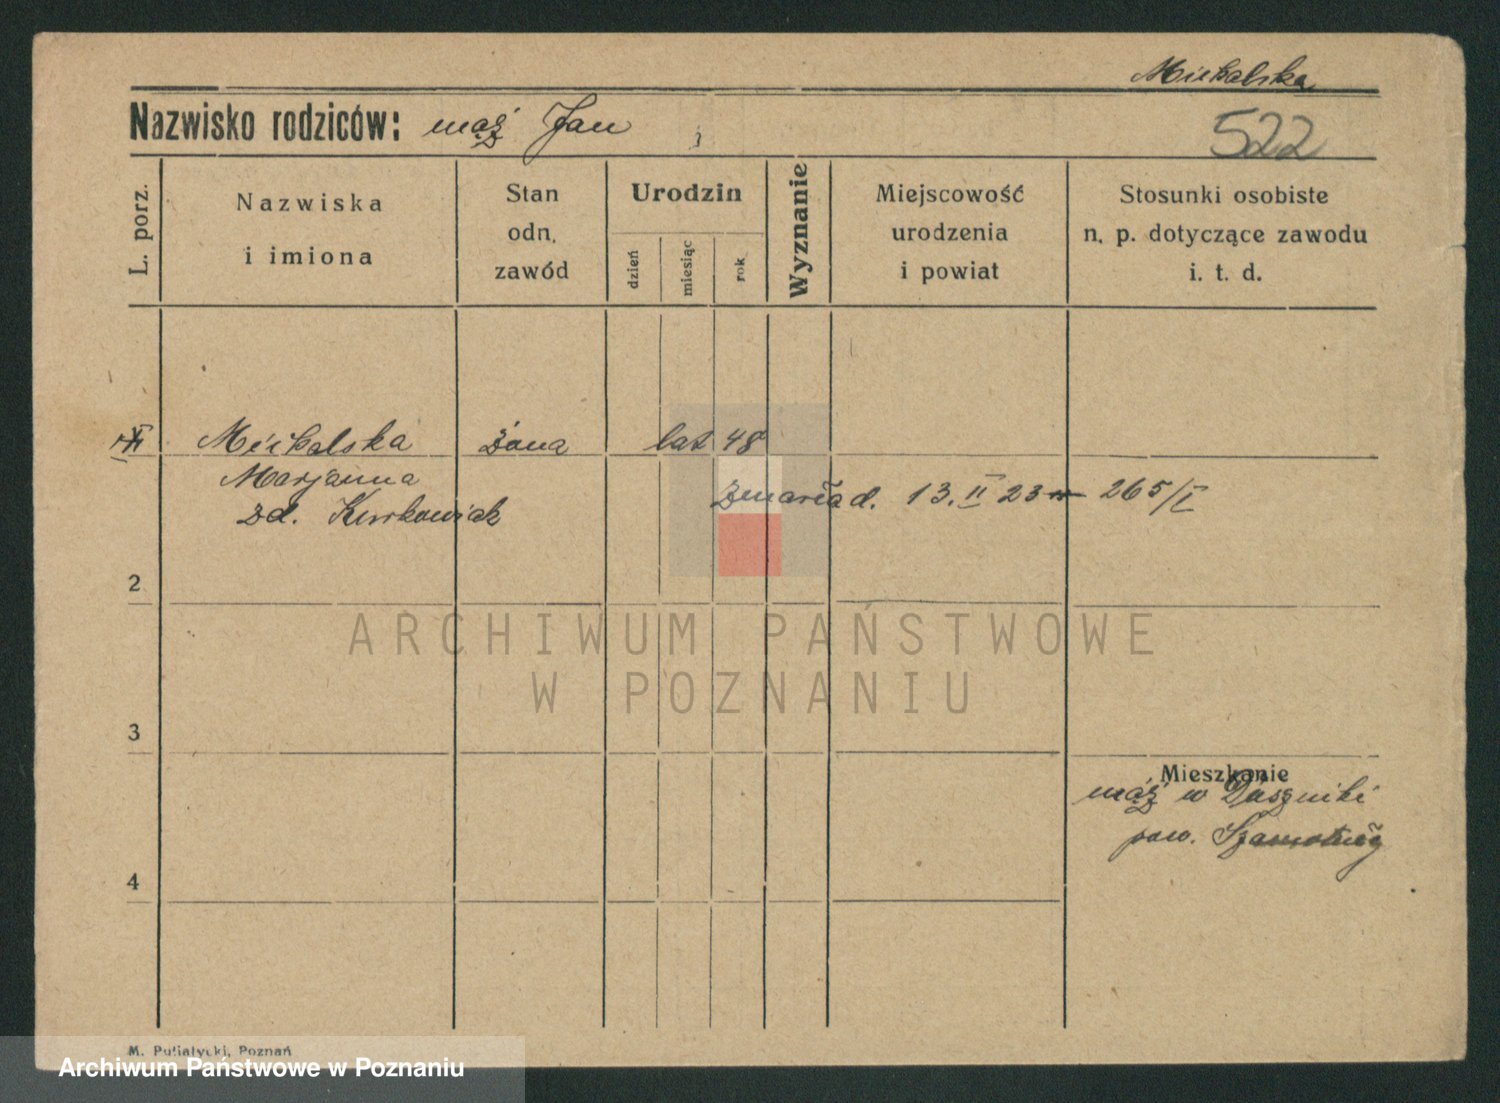 Michalska
Nazwisko rodziców: mąż Jan
522
L. porz.
Nazwiska
i imiona
Stan
odn.
zawód
Urodzin
dzień
miesiąc
rok
Wyznanie
Miejscowość
urodzenia
i powiat
Stosunki osobiste
n. p. dotyczące zawodu
i. t. d.
Michalska żona lat 48
Marjanna
zd.
zmarła d. 13. II 23 265/I
2
ARCHIWUM PAŃSTWOWE
W POZNANIU
3
Mieszkanie
mąż w Duszniki
pow. Szamotuły
4
M. Putiatycki, Poznań
Archiwum Państwowe w Poznaniu